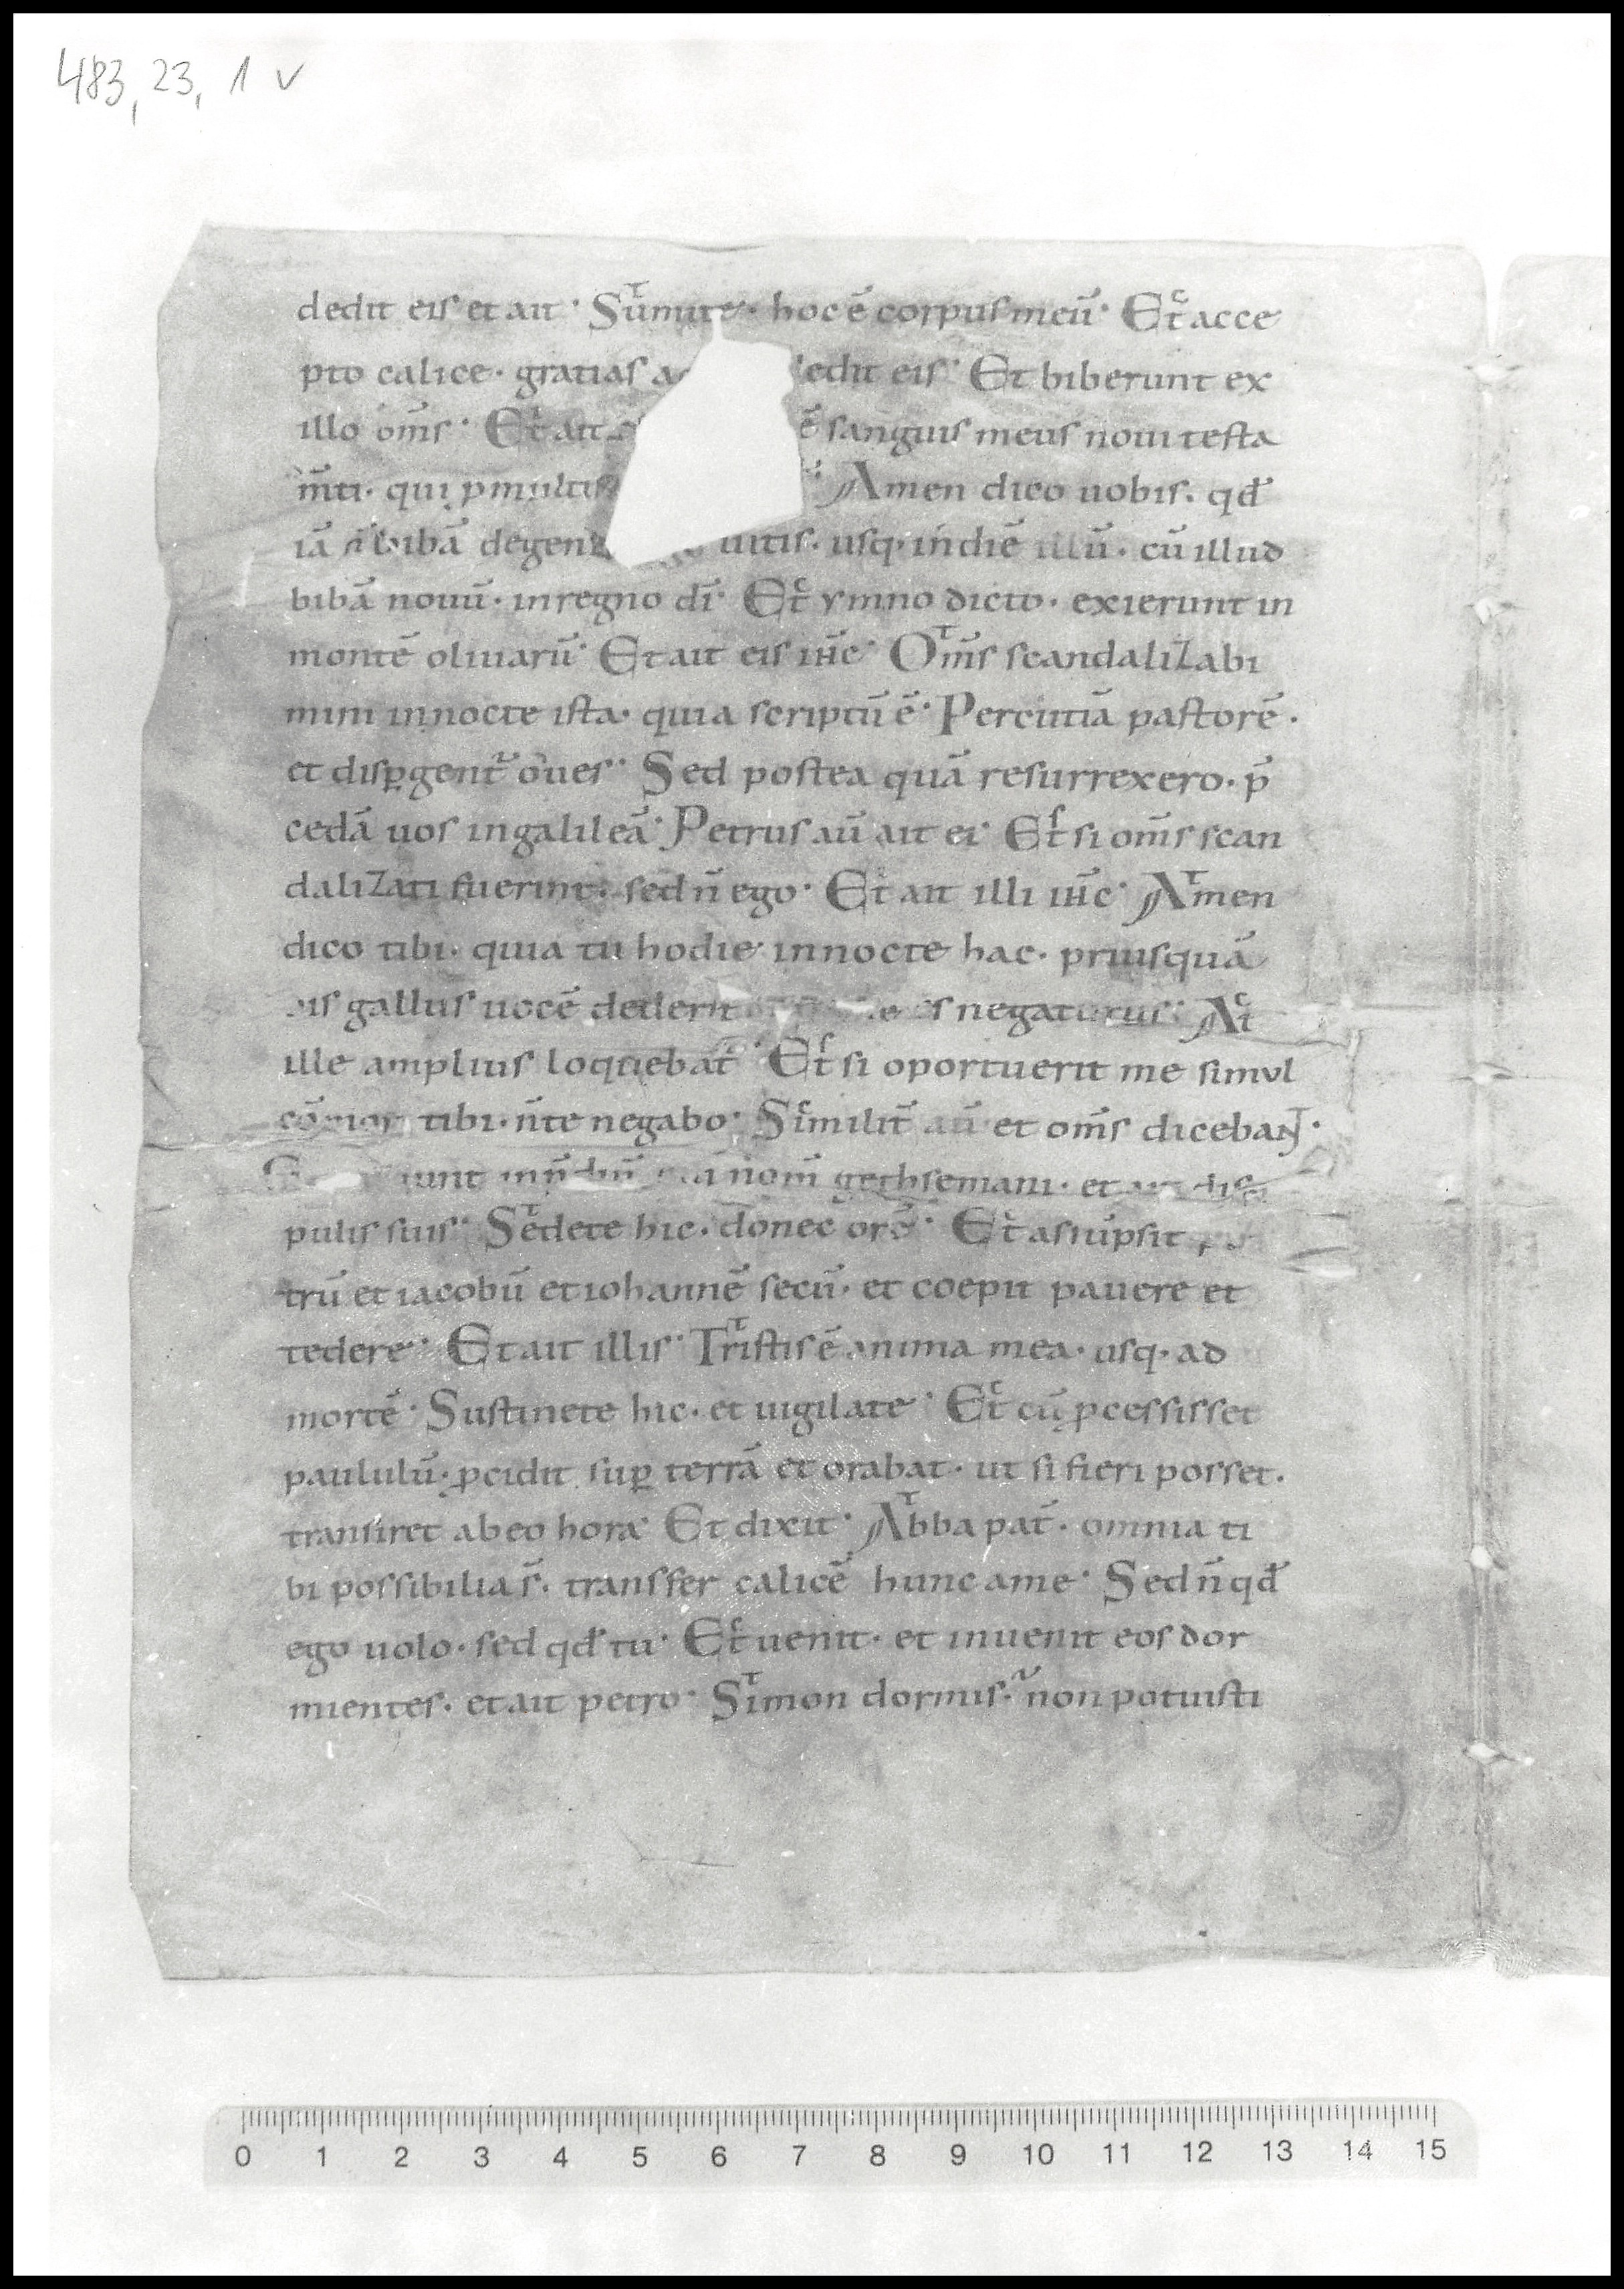 483, 23, 1 v
dedit eis et ait · Sumite · hoc ē corpus meū · Et acce
pto calice · gratias edit eis · Et biberunt ex
illo om̄s · Et ait ē sanguis meus noui testa
m̄ti · qui p multis Amen dico uobis · qđ
iā n̄ bibā de geni uitis · usq· in diē illū · cū illud
bibā nouū · in regno dī · Et ymno dicto · exierunt in
montē oliuarū · Et ait eis ihc · Om̄s scandalizabi
mini in nocte ista · quia scriptū ē · Percutiā pastorē ·
et dispgent̄ oues · Sed postea quā resurrexero · p̄
cedā uos in galileā · Petrus aū ait ei · Et si om̄s scan
dalizati fuerint · sed n̄ ego · Et ait illi ihc · Amen
dico tibi · quia tu hodie in nocte hac · priusquā
gallus uocē dederit es negaturus · At
ille amplius loquebat̄ · Et si oportuerit me simul
tibi · n̄ te negabo · Similit̄ aū et om̄s dicebant ·
nom̄ gethsemani · et
pulis suis · Sedete hic · donec orē · Et assūpsit
trū et iacobū et iohannē secū · et coepit pauere et
tedere · Et ait illis · Tristis ē anima mea · usq· ad
mortē · Sustinete hic · et uigilate · Et cū pcessisset
paululū · pcidit sup terrā et orabat · ut si fieri posset ·
transiret ab eo hora · Et dixit · Abba pat̄ · omnia ti
bi possibilia s̄ · transfer calicē hunc a me · Sed n̄ qđ
ego uolo · sed qđ tu · Et uenit · et inuenit eos dor
mientes · et ait petro · Simon dormis · non potuisti
0 1 2 3 4 5 6 7 8 9 10 11 12 13 14 15